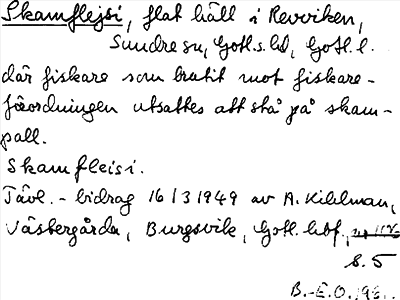 Skamflejsi, flat häll i Revviken,
Sundre sn, Gotl.s. hd, Gotl. l.
där fiskare som brutit mot fiskare-
förordningen utsattes att stå på skam-
pall.
Skamfleisi.
Tävl. - bidrag 16/3 1949 av A. Kihlman,
Västergårda, Burgsvik, Gotl. hbf.,
s. 5
B.-E.O. 198